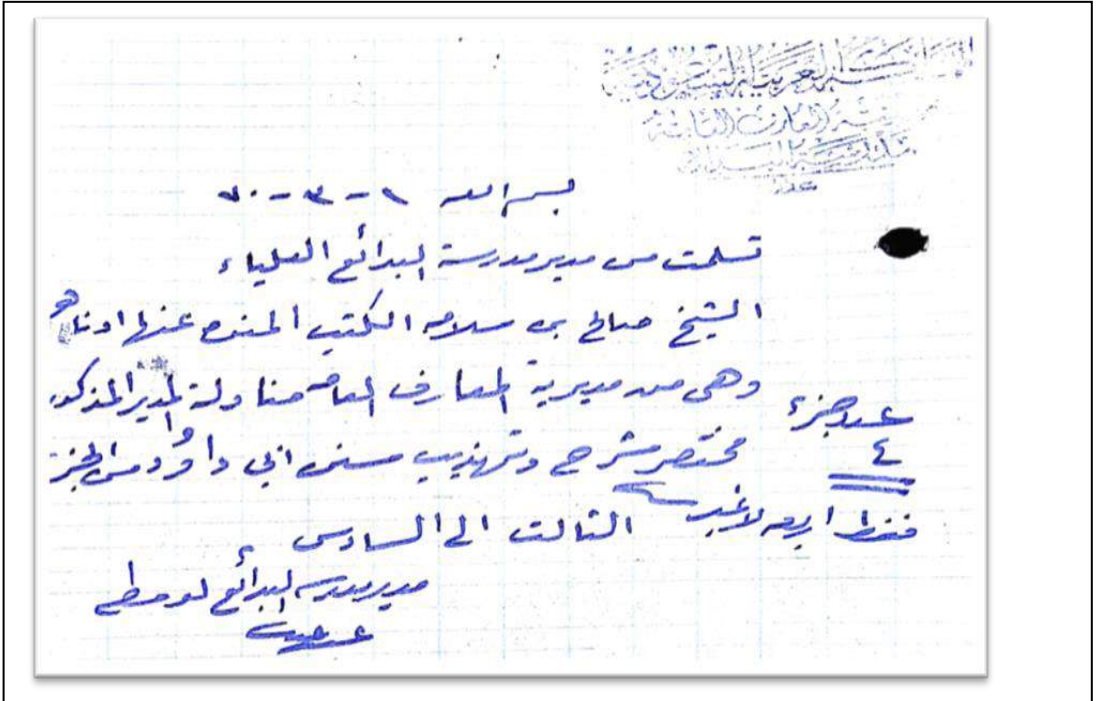 المملكة العربية السعودية
بسم الله ١ - ٣ - ٧٠
تسلمت من مدير مدرسة البدائع العلياء
الشيخ صالح بن سلامه الكتب المنوه عنها ادناه
وهي من مديرية المعارف العامه مناولة المدير المذكور
عدد جزء
٤
مختصر شرح وتهذيب سنن ابي داؤود من الجزء
الثالث الى السادس
فقط اربعه لاغير
مدير مدرسة البدائع الوسطى